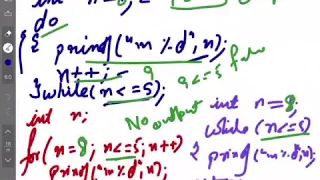 int n=8;
do
{ printf("m %d", n);
n++; 9
9<=5 false
}while(n<=5);
int n;
No output
for(n=8; n<=5; n++)
printf("m %d", n);
int n=8;
while(n<=5)
{ printf("m %d", n);